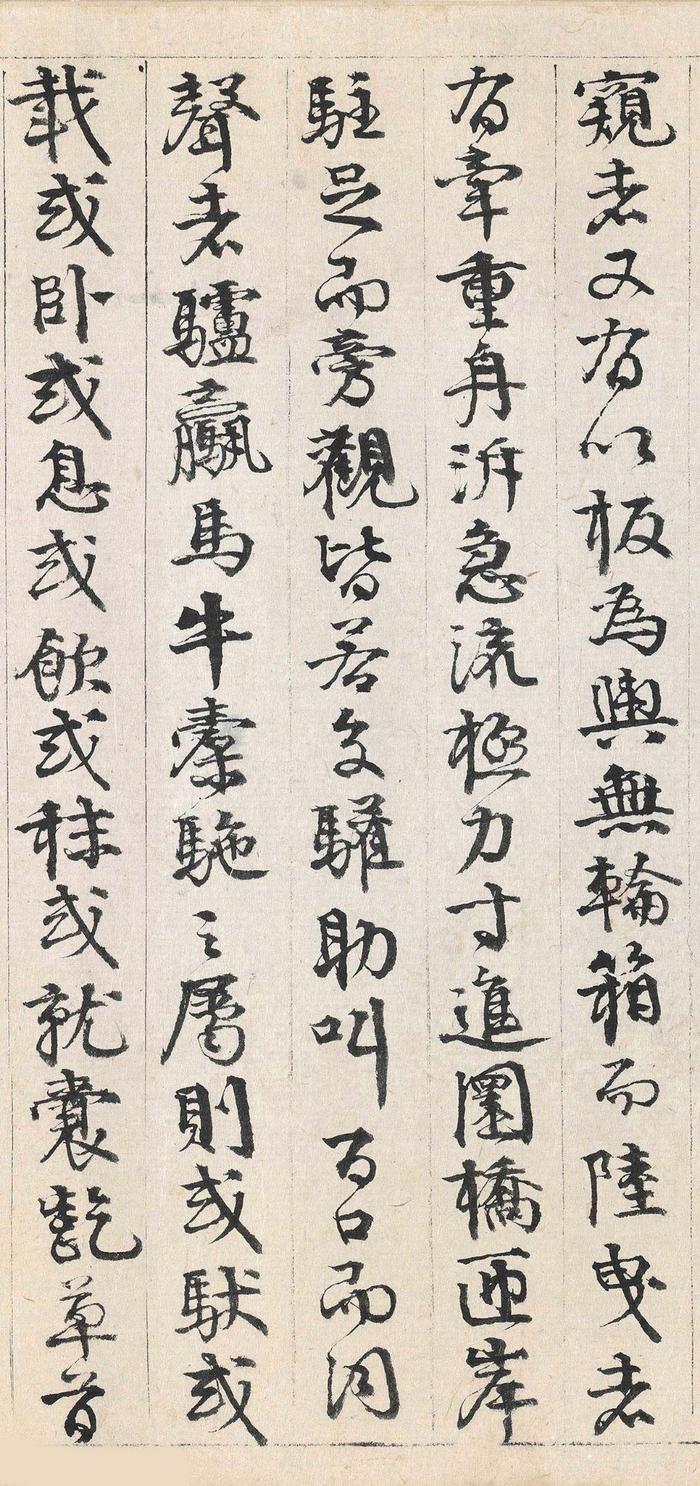 窺者又有以板為輿無輪箱而陸曵者
有牽重舟泝急流極力寸進圜橋匝岸
駐足而旁觀皆若交驩助叫百口而同
聲者驢驘馬牛橐駞之屬則或馱或
載或卧或息或飲或秣或就囊齕草首